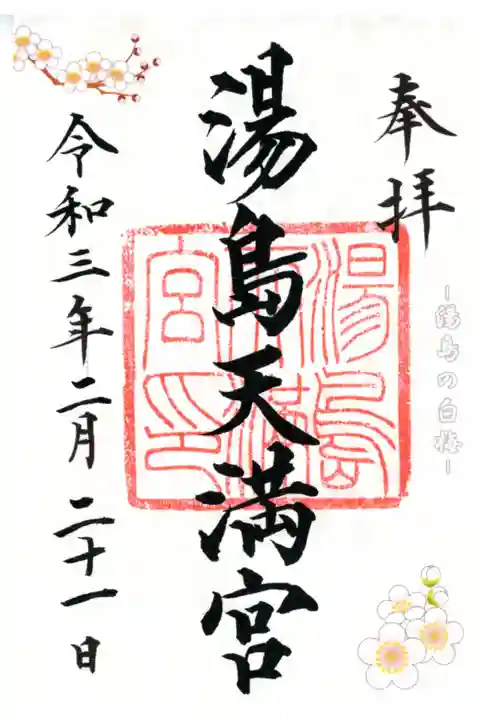 奉拝
ー湯島の白梅ー
湯島天満宮
湯島
天満
宮印
令和三年二月二十一日